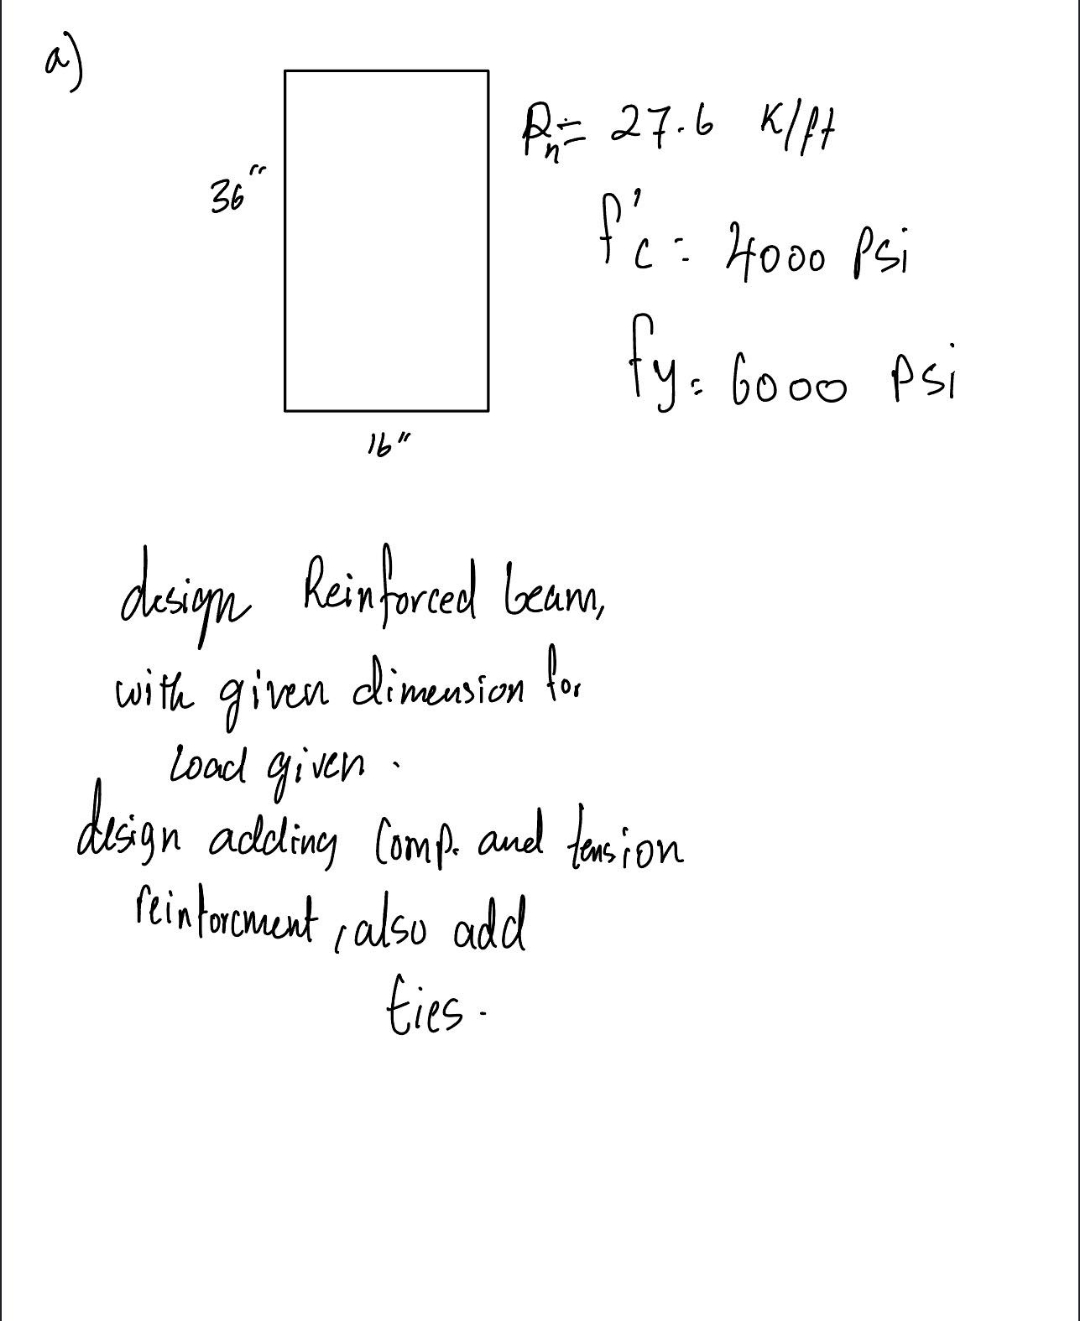 a)
Pn= 27.6 K/ft
36"
f'c = 4000 Psi
fy= 6000 Psi
16"
design Reinforced beam,
with given dimension for
Load given.
design adding Comp. and tension
reinforcment, also add
ties.